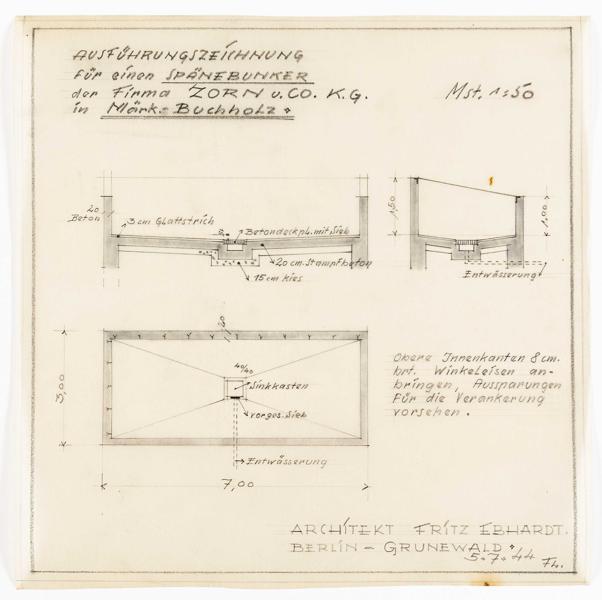 AUSFÜHRUNGSZEICHNUNG
für einen SPÄNEBUNKER
der Firma ZORN u. CO. K.G.
in Märk. Buchholz.
Mst. 1:50
20
Beton
3 cm Glattstrich
Betondeckpl. mit Sieb
20 cm. Stampfbeton
15 cm Kies
1,50
1,00
Entwässerung
20
3,00
40/40
Sinkkasten
vorges. Sieb
Entwässerung
7,00
Obere Innenkanten 8 cm.
brt. Winkeleisen an-
bringen, Aussparungen
für die Verankerung
vorsehen.
ARCHITEKT FRITZ EBHARDT.
BERLIN - GRUNEWALD.
5.7.44